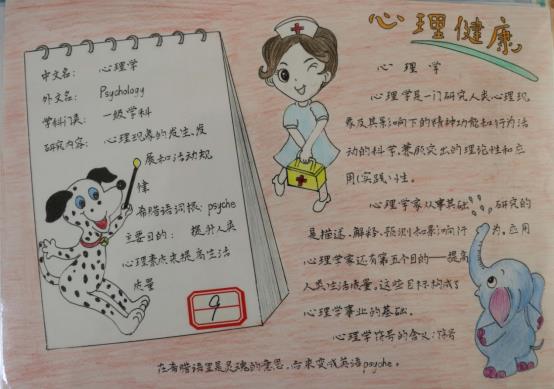 心理健康
中文名: 心理学
外文名: Psychology
学科门类: 一级学科
研究内容: 心理现象的发生、发
展和活动规
律
希腊语词根: psyche
主要目的: 提升人类
心理素质来提高生活
质量
9
心理学
心理学是一门研究人类心理现
象及其影响下的精神功能和行为活
动的科学,兼顾突出的理论性和应
用(实践)性。
心理学家从事基础研究的
是描述、解释、预测和影响行为。应用
心理学家还有第五个目的——提高
人类生活质量。这些目标构成了
心理学事业的基础。
心理学符号的含义:符号
在希腊语里是灵魂的意思,后来变成英语psyche。